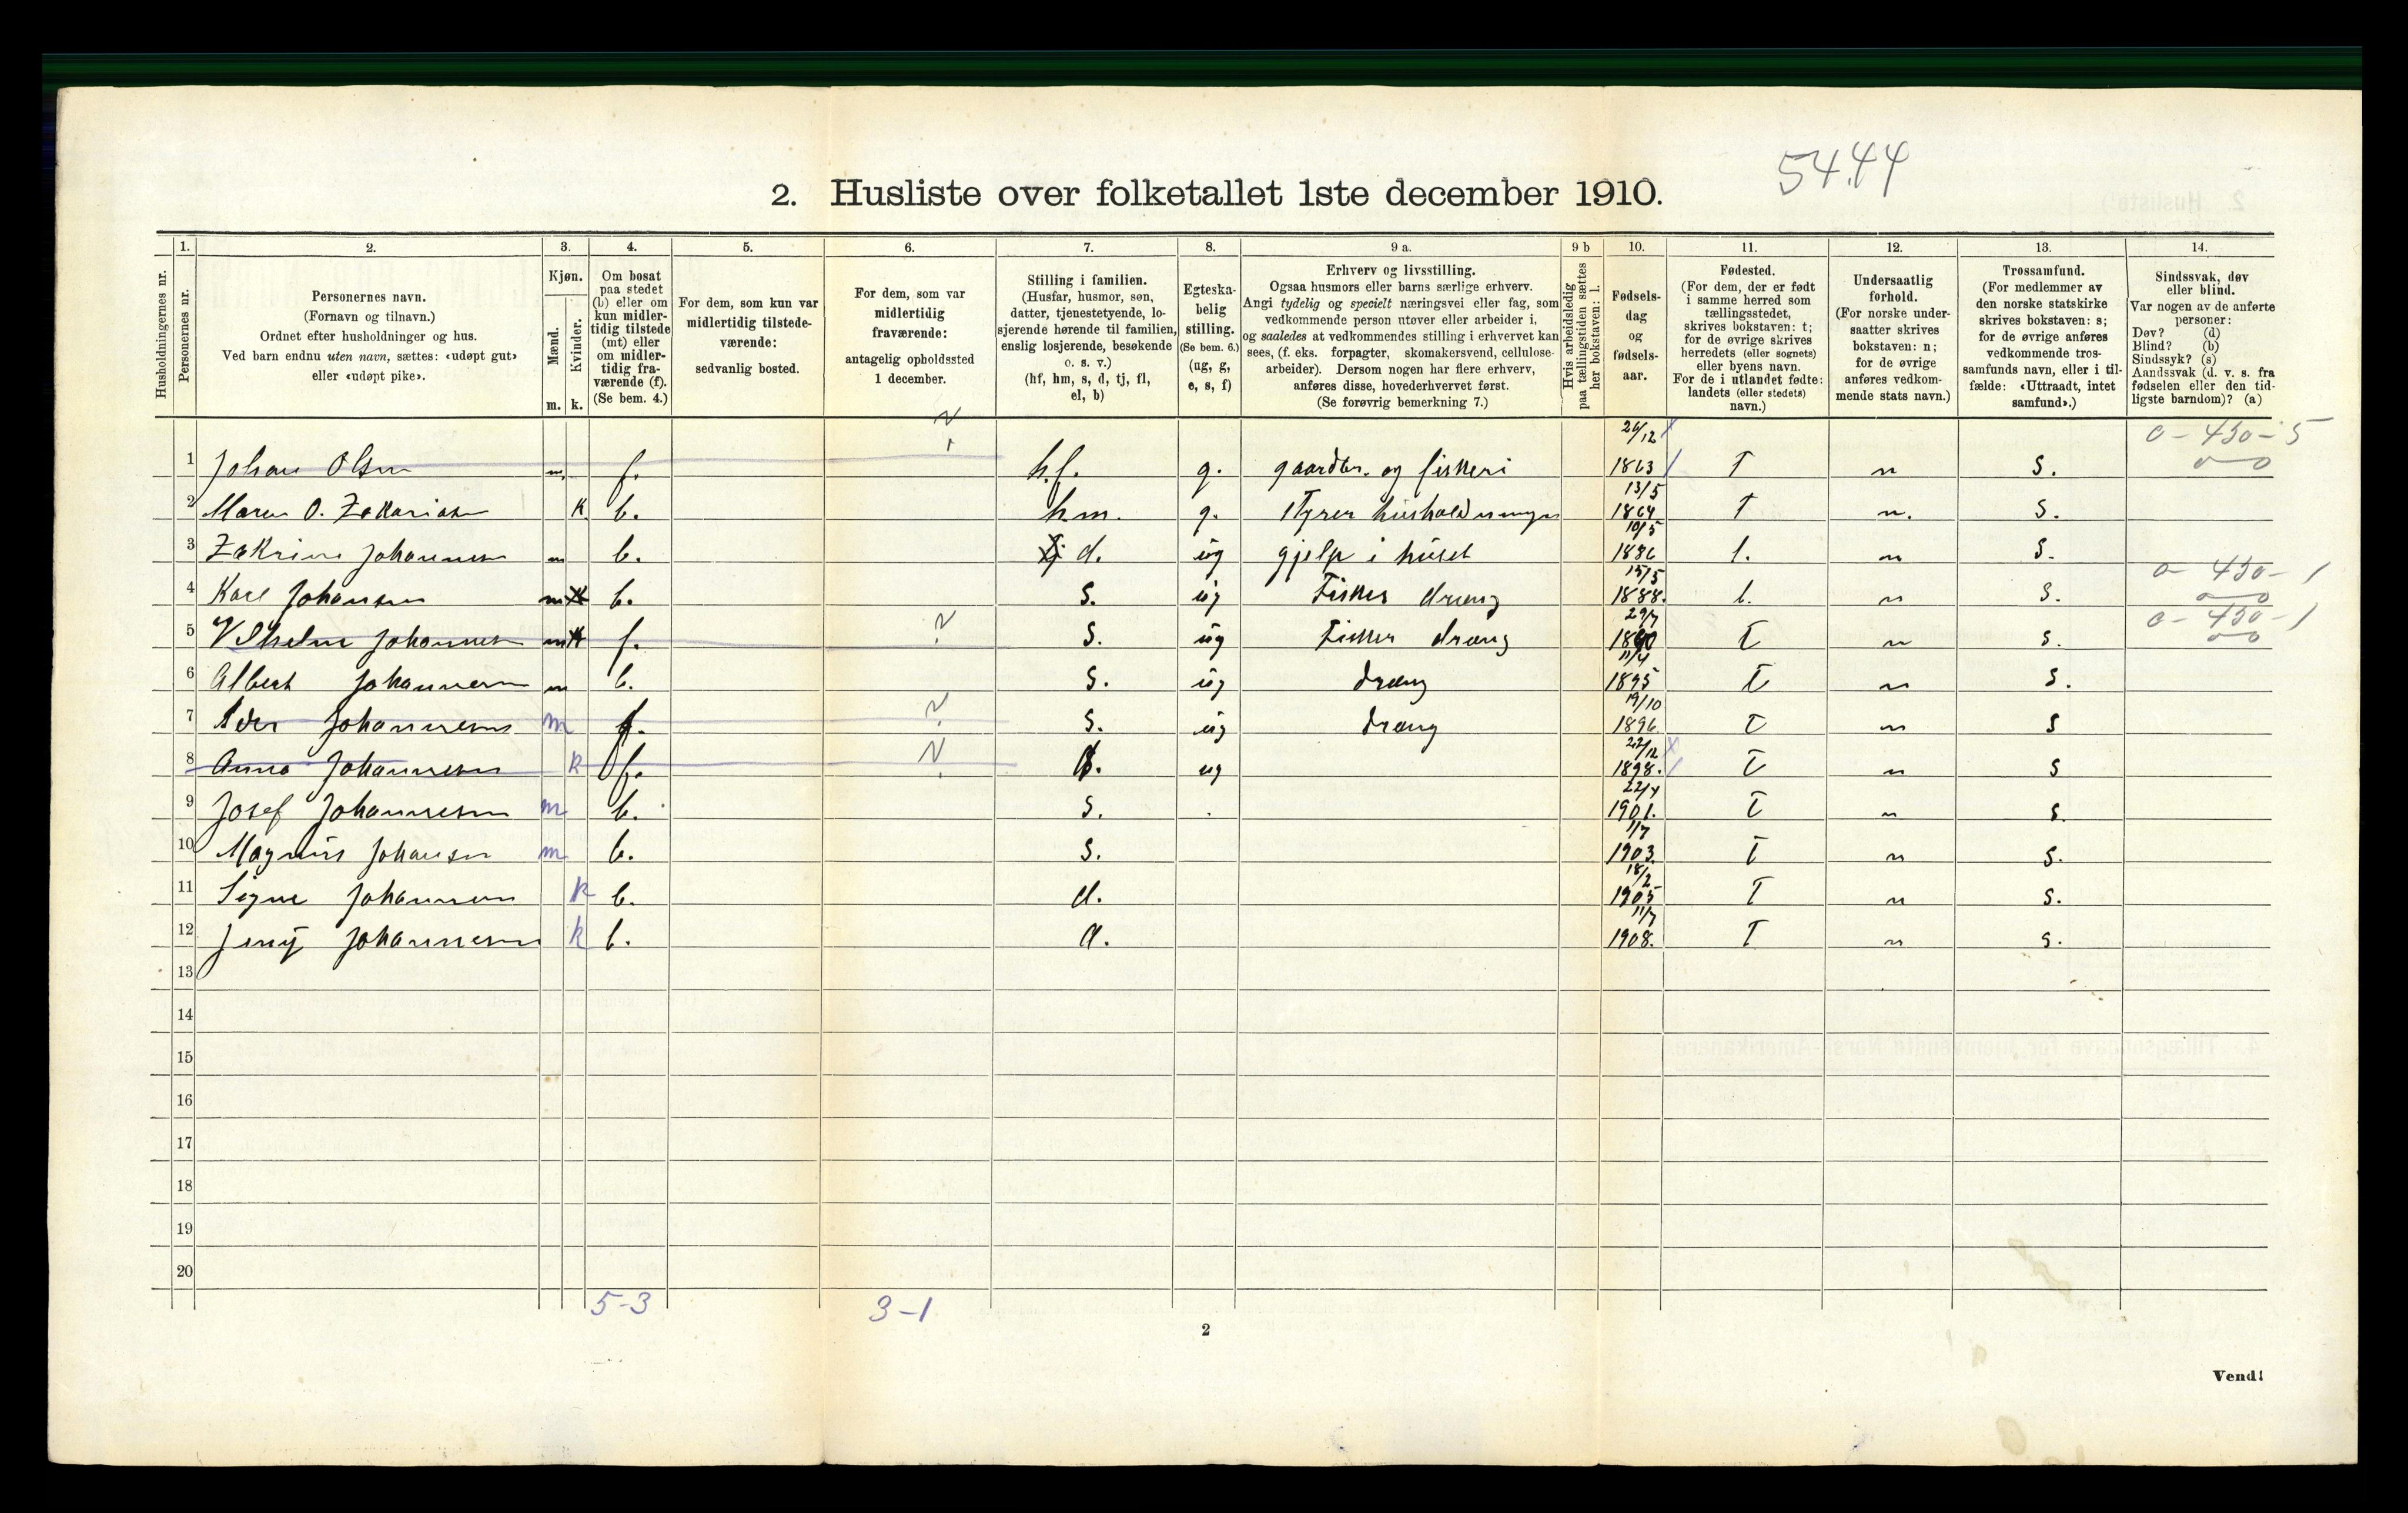 54.44
2. Husliste over folketallet 1ste december 1910.
1. 2. 3. 4. 5. 6. 7. 8. 9 a. 9 b 10. 11. 12. 13. 14.
Husholdningernes nr.
Personernes nr.
Personernes navn.
(Fornavn og tilnavn.)
Ordnet efter husholdninger og hus.
Ved barn endnu uten navn, sættes: «udøpt gut»
eller «udøpt pike».
Kjøn.
Mænd.
Kvinder.
m. k.
Om bosat
paa stedet
(b) eller om
kun midler-
tidig tilstede
(mt) eller
om midler-
tidig fra-
værende (f).
(Se bem. 4.)
For dem, som kun var
midlertidig tilstede-
værende:
sedvanlig bosted.
For dem, som var
midlertidig
fraværende:
antagelig opholdssted
1 december.
Stilling i familien.
(Husfar, husmor, søn,
datter, tjenestetyende, lo-
sjerende hørende til familien,
enslig losjerende, besøkende
o. s. v.)
(hf, hm, s, d, tj, fl,
el, b)
Egteska-
belig
stilling.
(Se bem. 6.)
(ug, g,
e, s, f)
Erhverv og livsstilling.
Ogsaa husmors eller barns særlige erhverv.
Angi tydelig og specielt næringsvei eller fag, som
vedkommende person utøver eller arbeider i,
og saaledes at vedkommendes stilling i erhvervet kan
sees, (f. eks. forpagter, skomakersvend, cellulose-
arbeider). Dersom nogen har flere erhverv,
anføres disse, hovederhvervet først.
(Se forøvrig bemerkning 7.)
Hvis arbeidsledig
paa tællingstiden sættes
her bokstaven: l.
Fødsels-
dag
og
fødsels-
aar.
Fødested.
(For dem, der er født
i samme herred som
tællingsstedet,
skrives bokstaven: t;
for de øvrige skrives
herredets (eller sognets)
eller byens navn.
For de i utlandet fødte:
landets (eller stedets)
navn.)
Undersaatlig
forhold.
(For norske under-
saatter skrives
bokstaven: n;
for de øvrige
anføres vedkom-
mende stats navn.)
Trossamfund.
(For medlemmer av
den norske statskirke
skrives bokstaven: s;
for de øvrige anføres
vedkommende tros-
samfunds navn, eller i til-
fælde: «Uttraadt, intet
samfund».)
Sindssvak, døv
eller blind.
Var nogen av de anførte
personer:
Døv? (d)
Blind? (b)
Sindssyk? (s)
Aandssvak (d. v. s. fra
fødselen eller den tid-
ligste barndom)? (a)
1 Johan Olsen m. f. ? h.f. g. gaardbr. og fiskeri 26/12 1863 T n s. 0-450-5
2 Maren O. Zakariasen k b. h.m. g. styrer husholdningen 13/5 1864 T n. s.
3 Zakrine Johannesen m b. d. ug gjelp i huset 10/5 1886 t. n s.
4 Karl Johansen m b. s. ug Fisker dræng 15/5 1888. t. n s. 0-450-1
5 Vilhelm Johannesen m f. ? s. ug Fisker dræng 29/7 1890 t n s. 0-450-1
6 Albert Johannesen m b. s. ug dræng 11/4 1895 t n s.
7 Johannesen m f. ? s. ug dræng 19/10 1896 t n s
8 Anna Johannesen k f. ? d. ug 22/12 1898. t n s
9 Josef Johannesen m b. s. 22/4 1901. t n s.
10 Magnus Johansen m b. s. 1/7 1903. t n s.
11 Signe Johannesen k b. d. 18/2 1905 T n s.
12 Jenny Johannesen k b. d. 11/7 1908. T n s.
13
14
15
16
17
18
19
20
5-3 3-1
2
Vend!